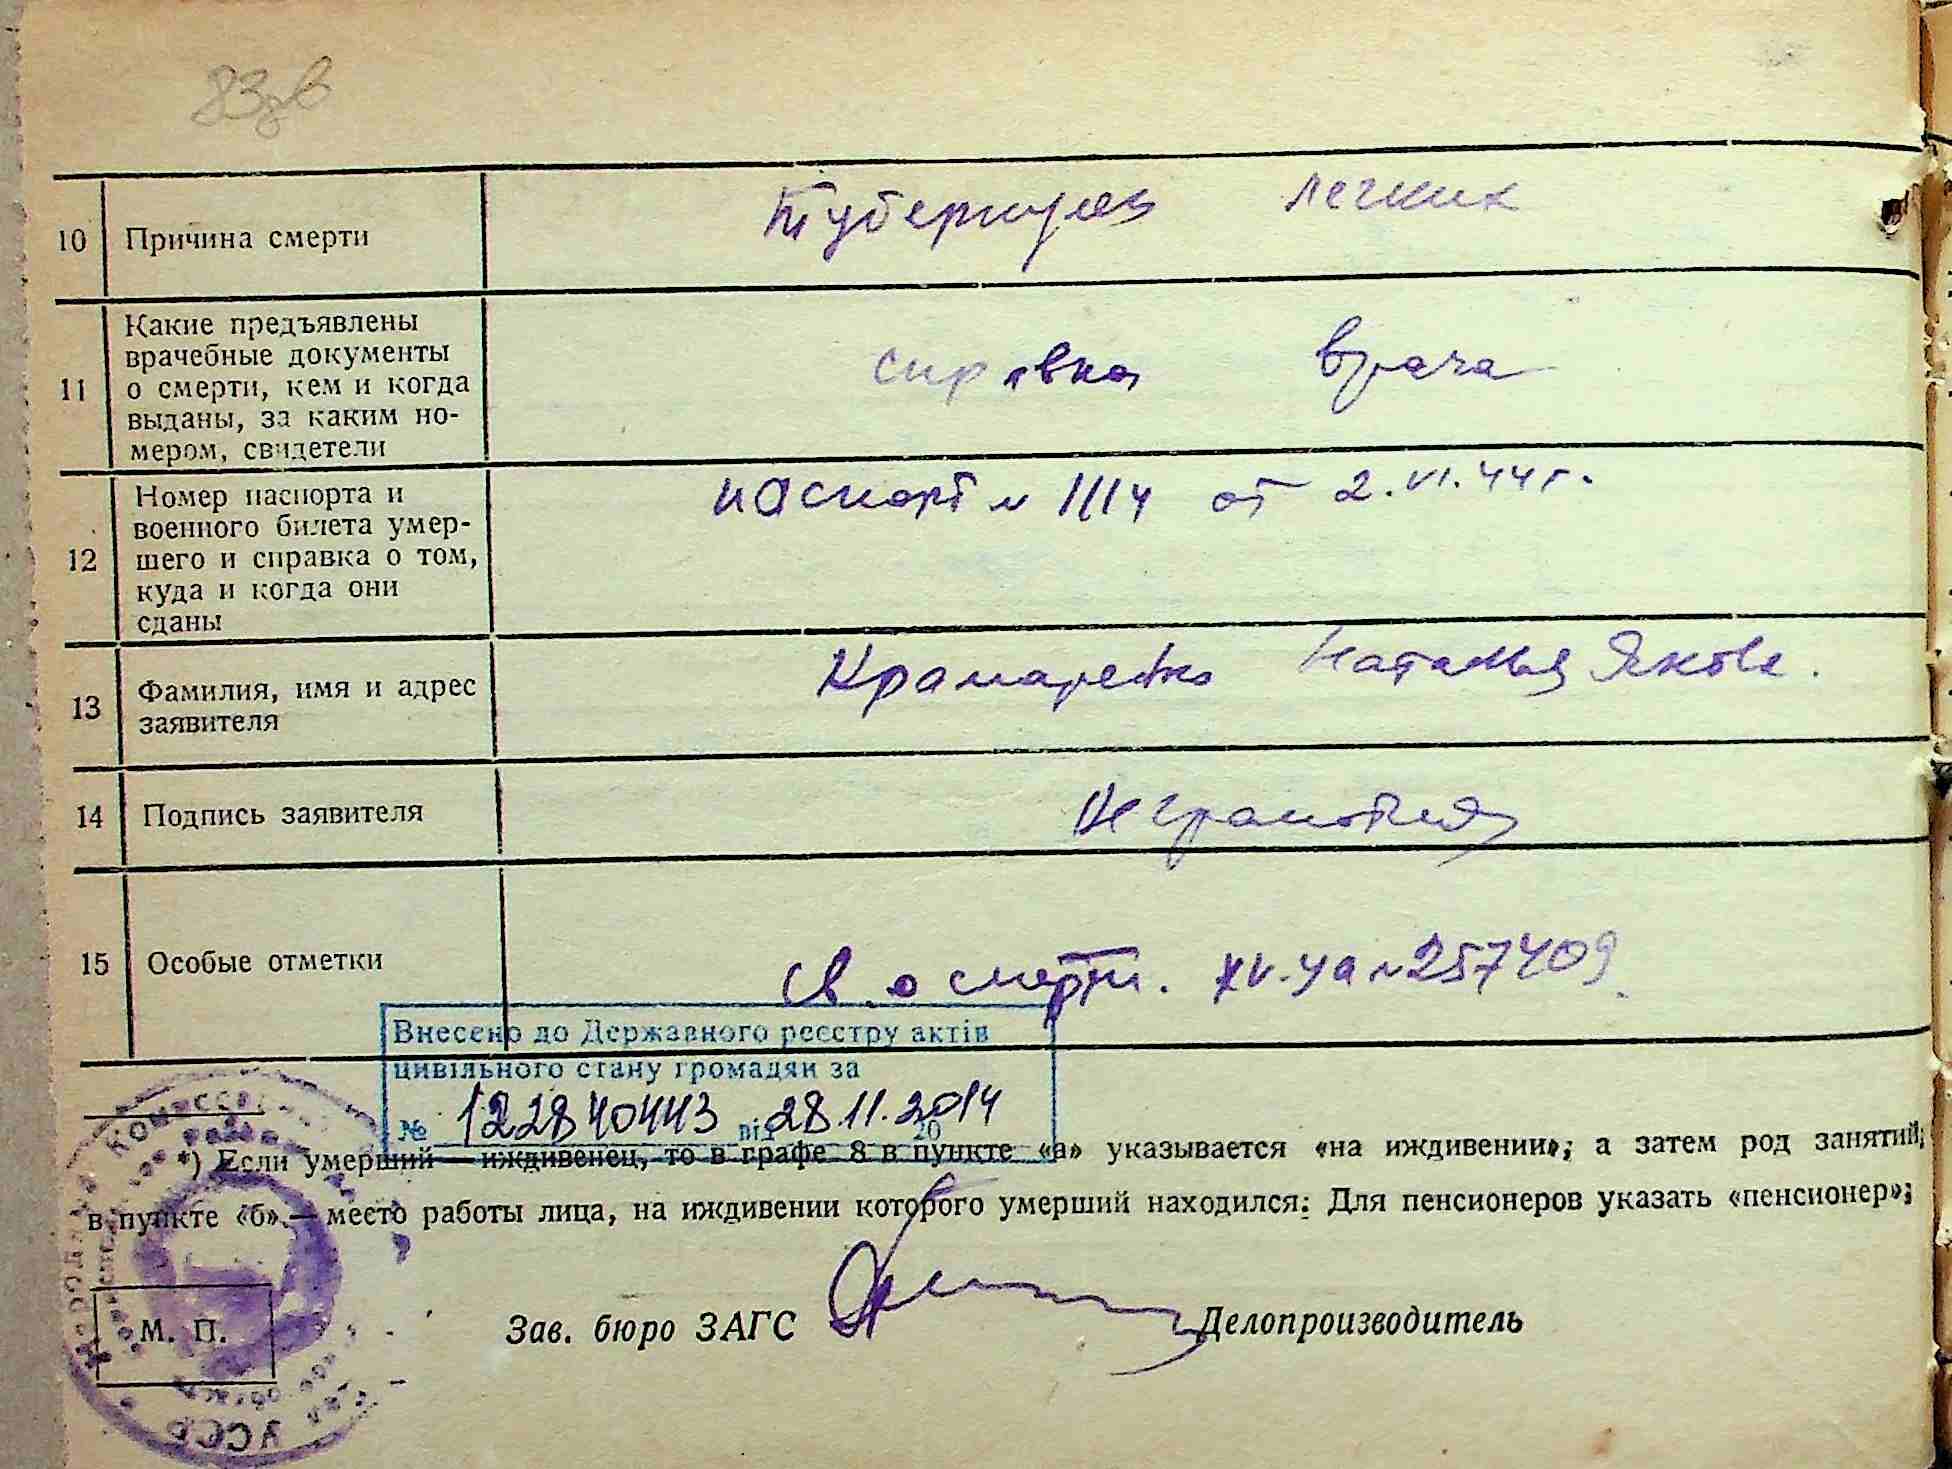 83зв
10 Причина смерти Туберкулез легких
11 Какие предъявлены
врачебные документы
о смерти, кем и когда
выданы, за каким но-
мером, свидетели
справка врача
12 Номер паспорта и
военного билета умер-
шего и справка о том,
куда и когда они
сданы
паспорт № 1114 от 2.VI.44г.
13 Фамилия, имя и адрес
заявителя
Крамаренко Наталья Яковл.
14 Подпись заявителя неграмотная
15 Особые отметки Св. о смерти. XV-УА № 257409.
Внесено до Державного реєстру актів
цивільного стану громадян за
№ 122840443 від 28.11.2014
*) Если умерший — иждивенец, то в графе 8 в пункте «а» указывается «на иждивении»; а затем род занятий;
в пункте «б» — место работы лица, на иждивении которого умерший находился: Для пенсионеров указать «пенсионер»;
М. П.
Зав. бюро ЗАГС Делопроизводитель
УССР